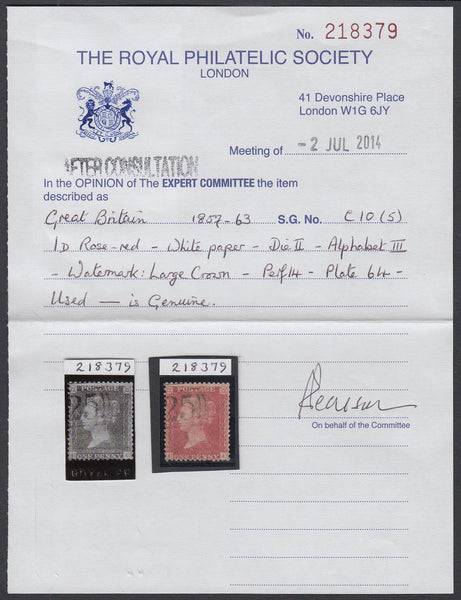 No. 218379
THE ROYAL PHILATELIC SOCIETY
LONDON
41 Devonshire Place
London W1G 6JY
Meeting of - 2 JUL 2014
AFTER CONSULTATION
In the OPINION of The EXPERT COMMITTEE the item
described as
Great Britain 1857-63 S.G. No. C10(5)
1D Rose-red - White paper - Die II - Alphabet III
- Watermark: Large Crown - Perf 14 - Plate 64 -
Used — is Genuine.
218379 218379
POSTAGE POSTAGE
251 251
ONE PENNY ONE PENNY
On behalf of the Committee